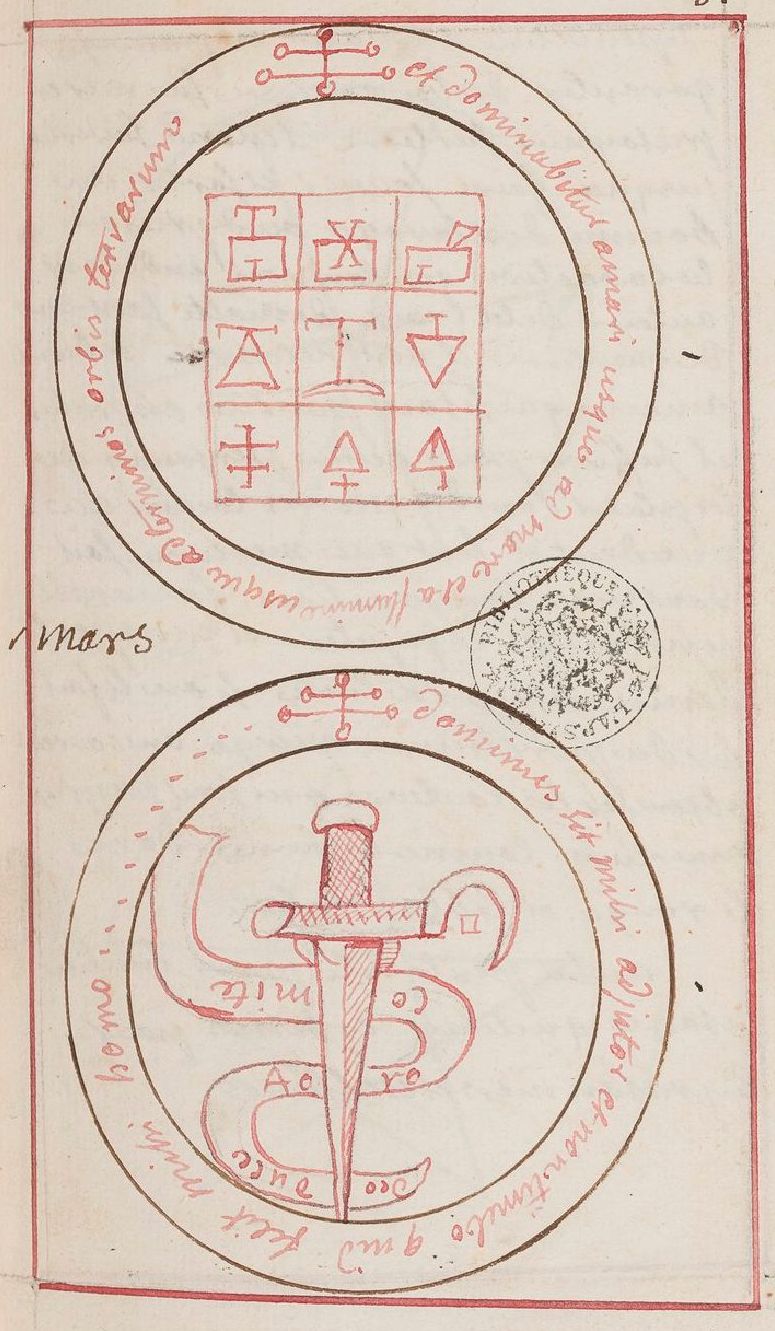 et dominabitur amari usque ad mare et a flumine usque ad terminos orbis terrarum
BIBLIOTHEQUE DE L'ARS
Mars
Dominus sit mihi adjutor et non timebo quid facit mihi homo
Co mite
Ao ro
Deo Duce